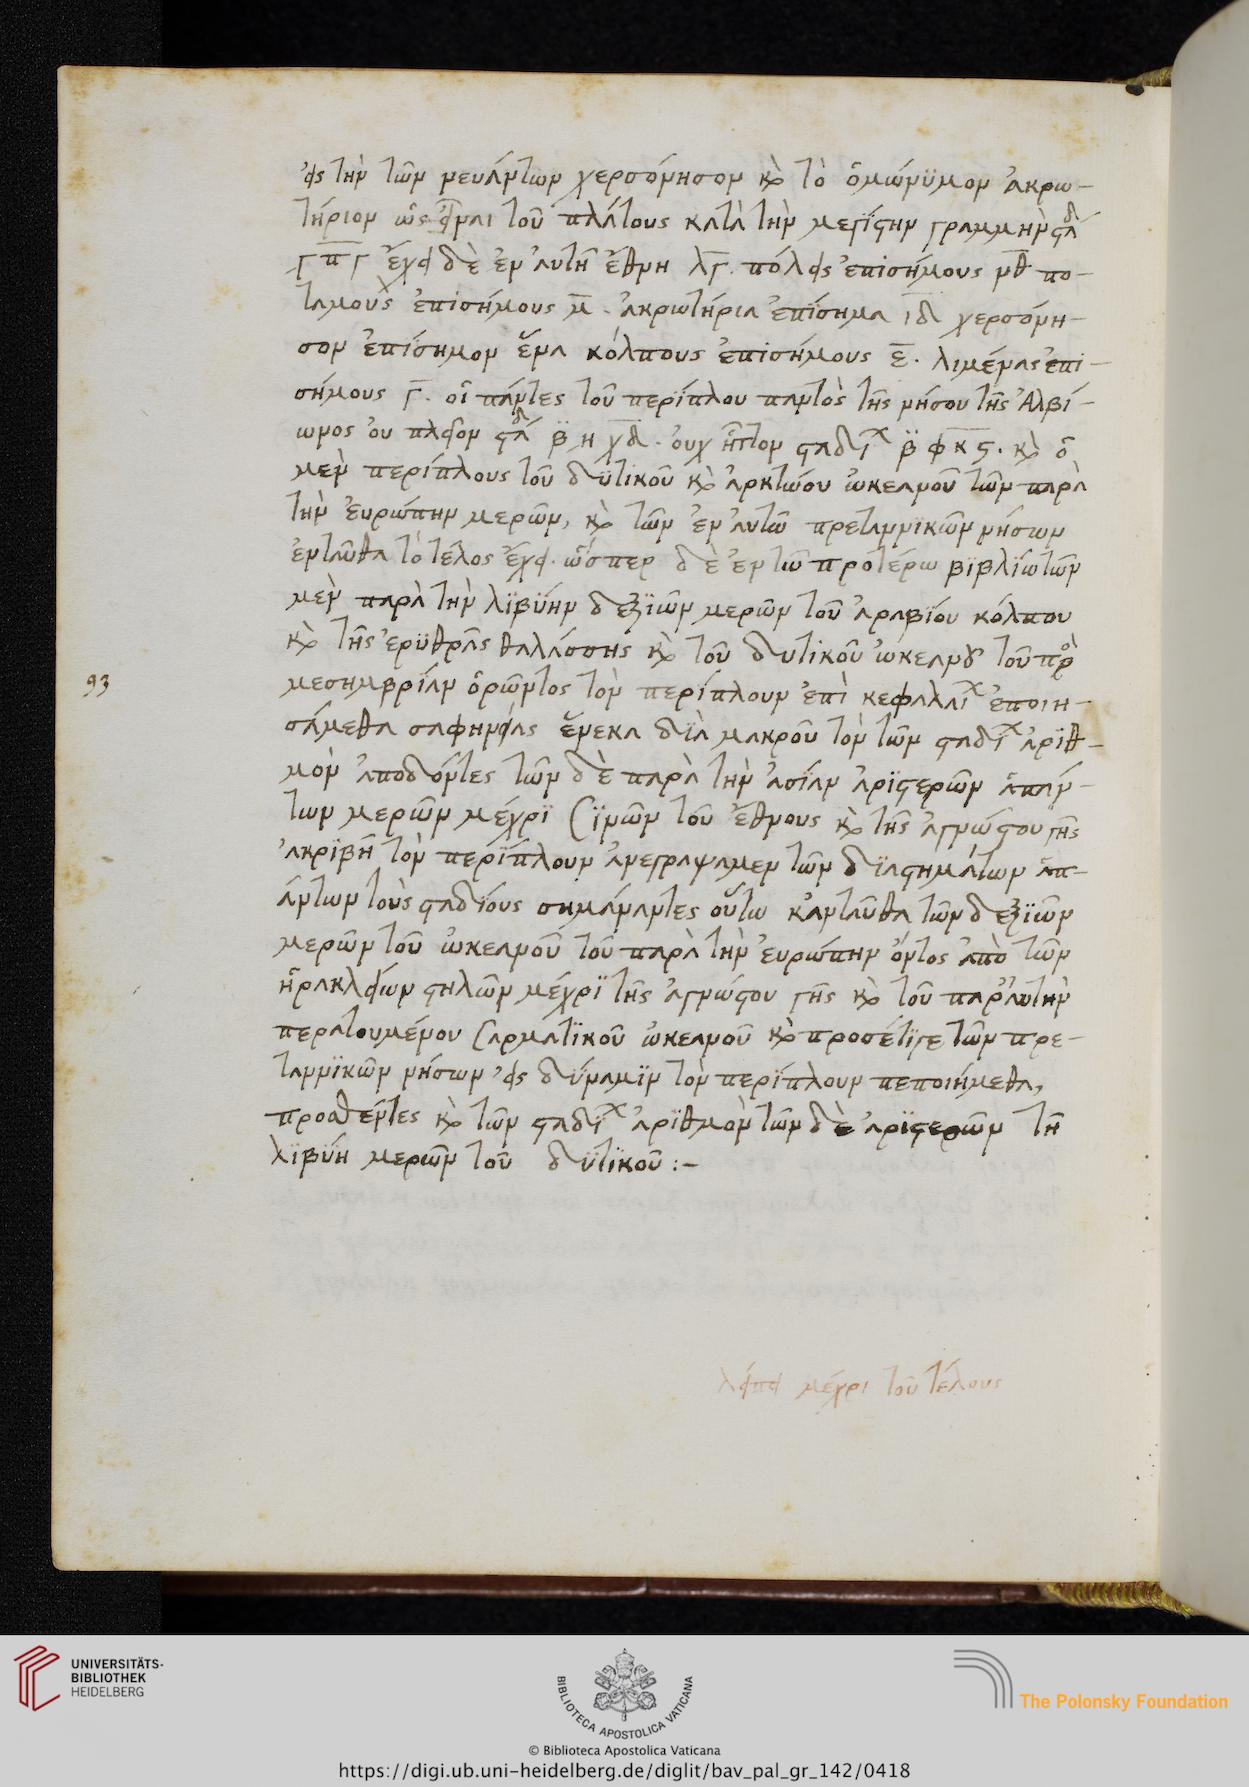 εἰς τὴν τῶν νευάντων χερσόνησον καὶ τὸ ὁμώνϋμον ἀκρω-
τήριον ὡς εἶναι τοῦ πλάτους κατὰ τὴν μεγίστην γραμμὴν σταδ
γ π γ ἔχει δὲ ἐν αὐτῇ ἔθνη λγ. πόλεις ἐπισήμους νθ πο-
ταμοὺς ἐπισήμους μ. ἀκρωτήρια ἐπίσημα ιδ χερσόνη-
σον ἐπίσημον ἕνα κόλπους ἐπισήμους ε. λιμένας ἐπι-
σήμους γ. οἱ πάντες τοῦ περίπλου παντὸς τῆς νήσου τῆς Ἀλβί-
ωνος οὐ πλεῖον σταδ β η χδ. οὐχ ἧττον σταδι β φκς. καὶ ὁ
μὲν περίπλους τοῦ δϋτικοῦ καὶ ἀρκτώου ὠκεανοῦ τῶν παρὰ
τὴν ἐυρώπην μερῶν, καὶ τῶν ἐν αὐτῶ πρεταννϊκῶν νήσων
ἐνταῦθα τὸ τέλος ἔχει. ὥσπερ δὲ ἐν τῶ προτέρω βϊβλίω τῶν
μὲν παρὰ τὴν λϊβϋην δεξϊῶν μερῶν τοῦ ἀραβίου κόλπου
καὶ τῆς ἐρϋθρᾶς θαλάσσης καὶ τοῦ δυτικοῦ ὠκεανοῦ τοῦ πρὸ
μεσημβρίαν ὁρῶντος τὸν περίπλουν ἐπὶ κεφαλαι ἐποιη-
σάμεθα σαφηνείας ἕνεκα δϊὰ μακροῦ τὸν τῶν σταδι ἀρϊθ-
μὸν ἀποδόντες τῶν δὲ παρὰ τὴν ἀσίαν ἀρϊστερῶν ἁπάν-
των μερῶν μέχρϊ Σϊνῶν τοῦ ἔθνους καὶ τῆς ἀγνώστου γῆς
ἀκρϊβῆ τὸν περίπλουν ἀνεγραψαμεν τῶν δϊαστημάτων ἁπ-
άντων τοὺς σταδίους σημάναντες οὕτω κἀνταῦθα τῶν δεξϊῶν
μερῶν τοῦ ὠκεανοῦ τοῦ παρὰ τὴν ἐυρώπην ὄντος ἀπὸ τῶν
ἡρακλείων στηλῶν μέχρϊ τῆς ἀγνώστου γῆς καὶ τοῦ παρ’ αὐτὴν
περατουμένου Σαρματϊκοῦ ὠκεανοῦ καὶ προσέτϊγε τῶν πρε-
ταννϊκῶν νήσων εἰς δύναμϊν τὸν περίπλουν πεποιήμεθα,
προσθέντες καὶ τῶν σταδϊ ἀρϊθμὸν τῶν δὲ ἀρϊστερῶν τῆ
λϊβύη μερῶν τοῦ δϋτϊκοῦ :–
93
λείπει μέχρι τοῦ τέλους
UNIVERSITÄTS-
BIBLIOTHEK
HEIDELBERG
BIBLIOTECA APOSTOLICA VATICANA
The Polonsky Foundation
© Biblioteca Apostolica Vaticana
https://digi.ub.uni-heidelberg.de/diglit/bav_pal_gr_142/0418